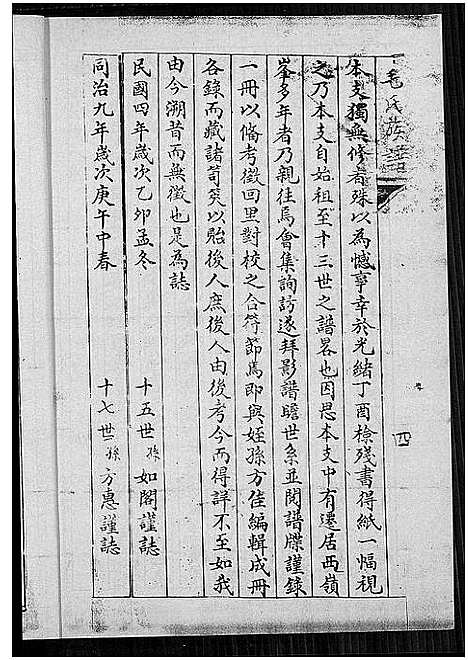 毛氏族譜
四
本支獨無修者殊以為憾事幸於光緒丁酉檢殘書得紙一幅視
之乃本支自始祖至十三世之譜畧也因思本支中有遷居西嶺
峯多年者乃親往焉會集詢訪遂拜影譜瞻世系並閱譜牒謹錄
一冊以備考徵回里對校之合符節焉即與姪孫方佳編輯成冊
各錄而藏諸笥笑以貽後人庶後人由後考今而得詳不至如我
由今溯昔而無徵也是為誌
民國四年歲次乙卯孟冬 十五世孫如閣謹誌
同治九年歲次庚午中春 十七世孫方惠謹誌